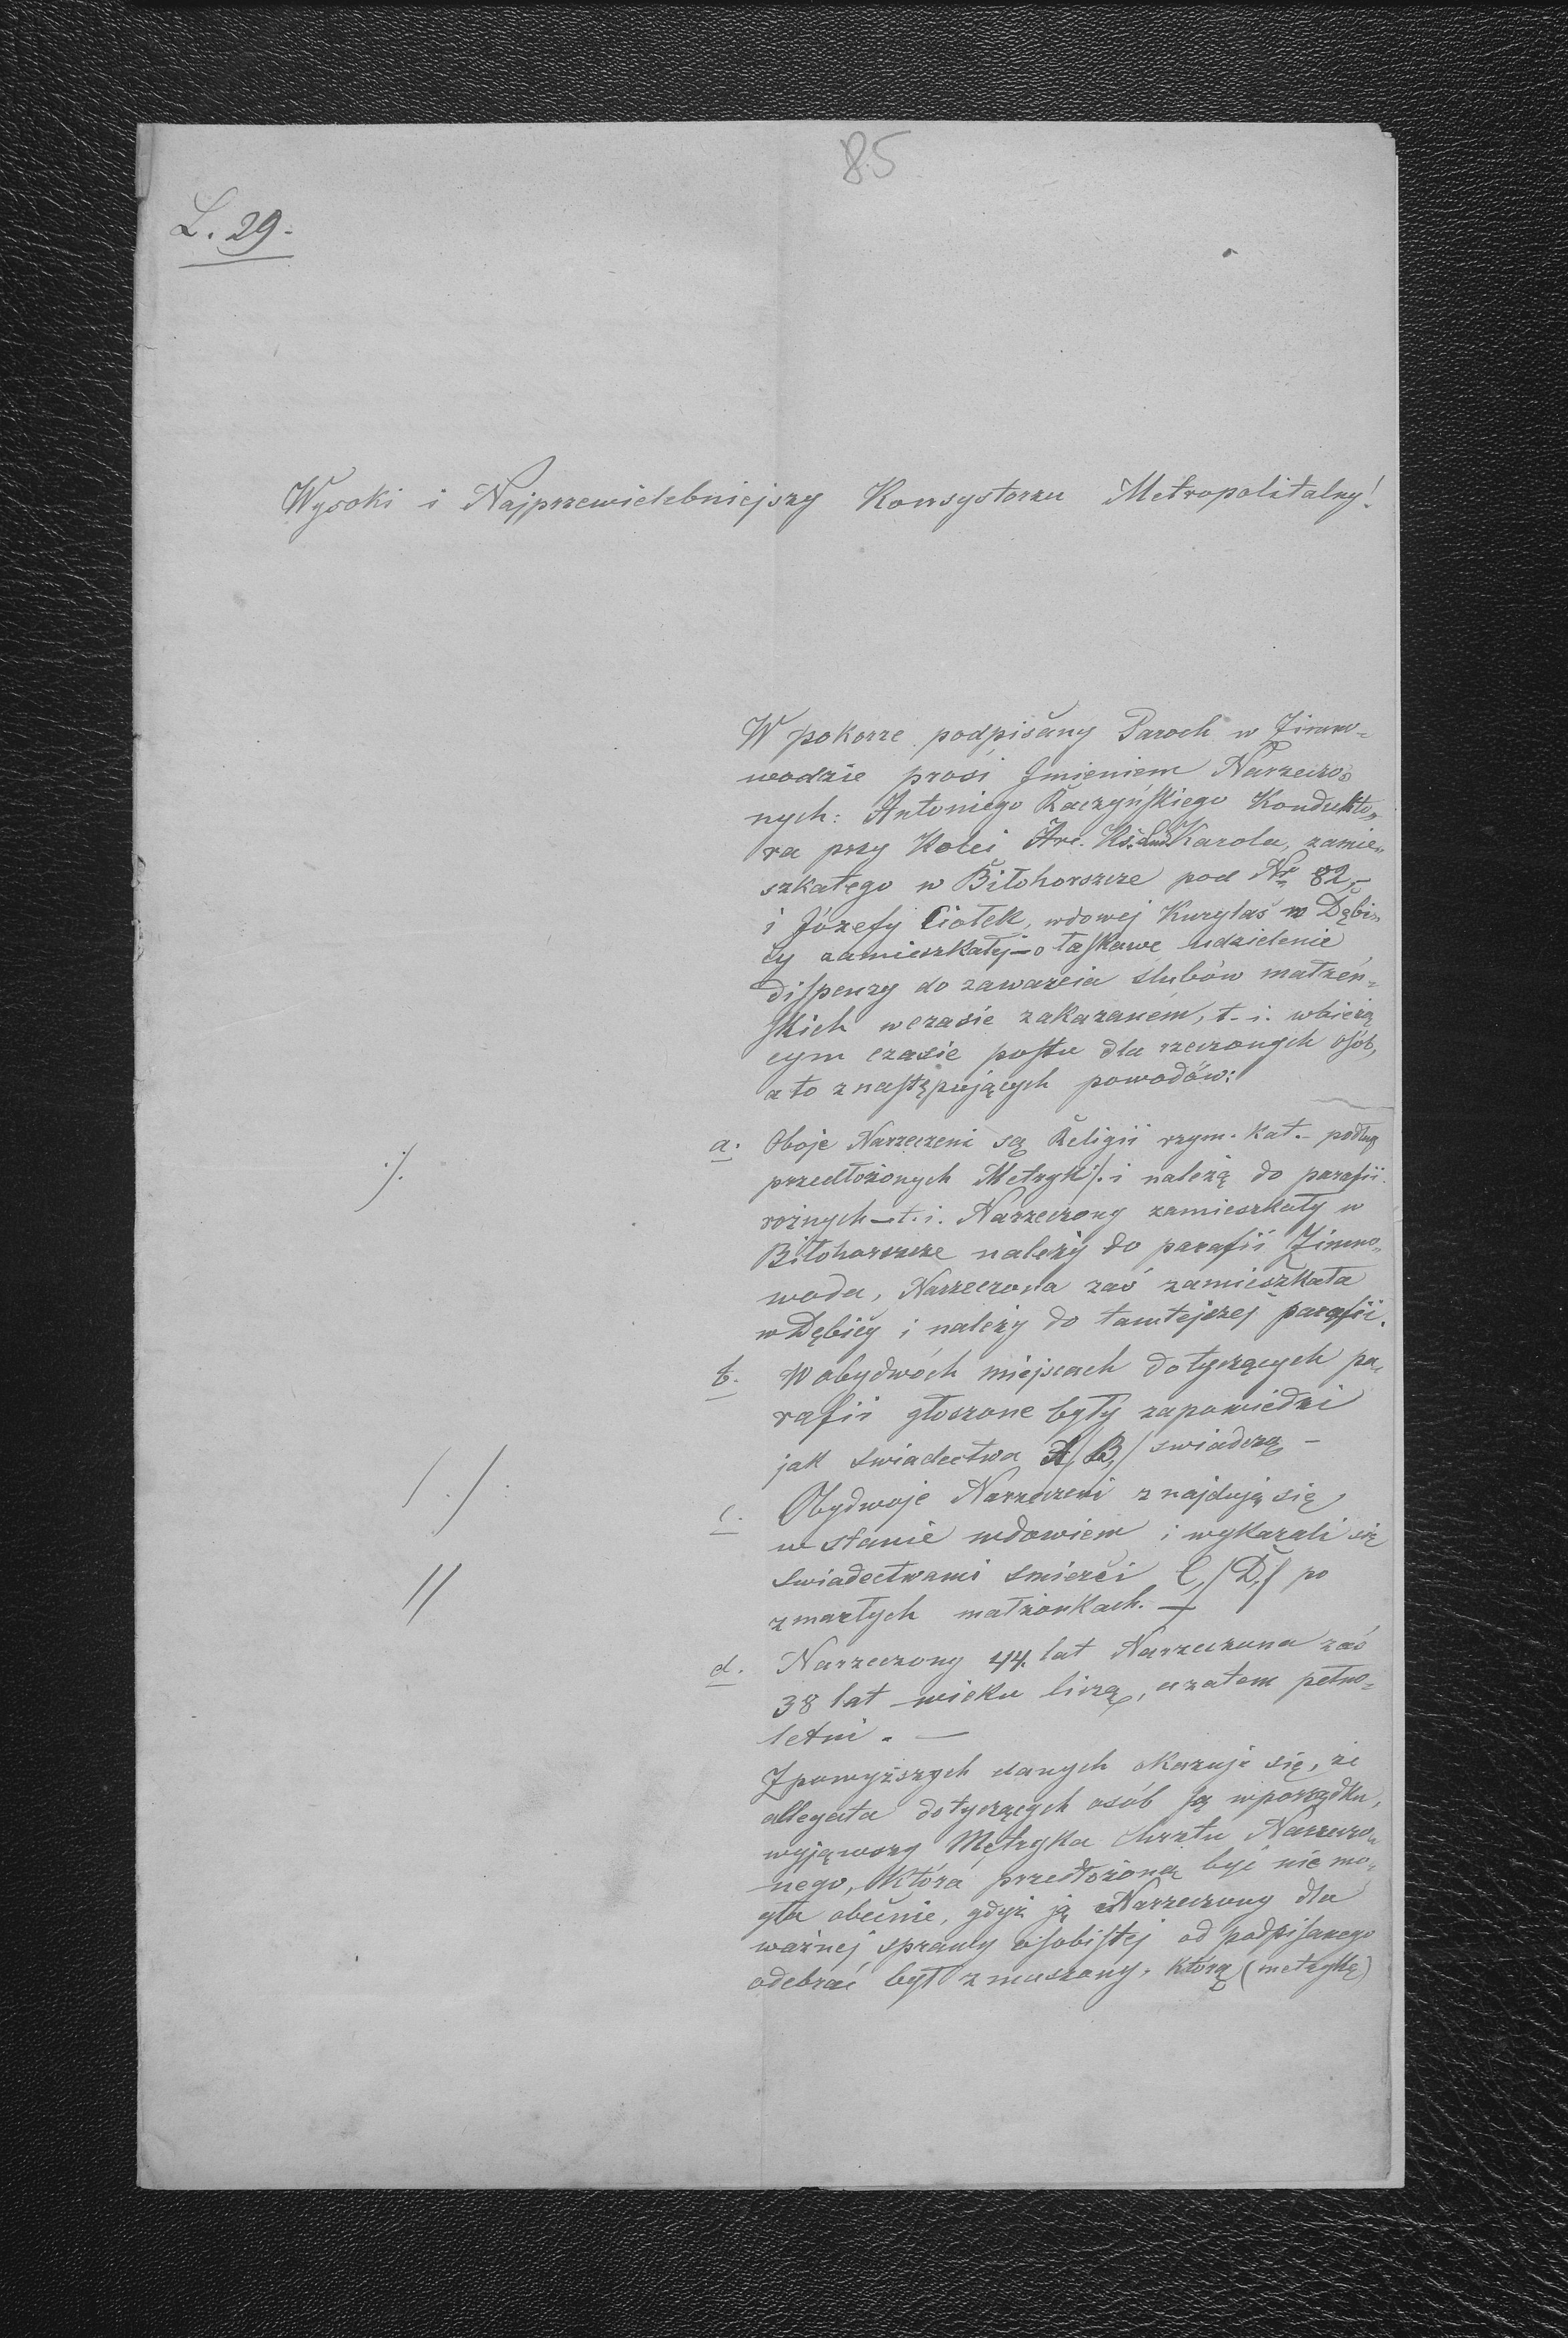 85
L. 29.
Wysoki i Najprzewielebniejszy Konsystorzu Metropolitalny!
W pokorze podpisany Paroch w Zimno-
wodzie prosi Imieniem Narzeczo-
nych: Antoniego Raczyńskiego Kondukto-
ra przy Kolei Arc. Ks. Lud. Karola, zamie-
szkałego w Biłohorszcze pod Nr 82,-
i Józefy Ciołek, wdowej Kurylas w Dębi-
cy zamieszkałej - o łaskawe udzielenie
dispenzy do zawarcia slubów małżeń-
skich w czasie zakazanem, t. i. w bieżą
cym czasie postu dla rzeczonych osób,
a to z następujących powodów:
a. Oboje Narzeczeni są Religii rzym. kat. - podług
./. przedłożonych Metryk ./. i należą do parafii
rożnych - t. i. Narzeczony zamieszkały w
Biłohorszcze należy do parafii Zimno-
woda, Narzeczona zaś zamieszkała
w Dębicy i należy do tamtejszej parafii.
b. W obydwóch miejscach dotyczących pa-
rafii głoszone były zapowiedzi
jak swiadectwa A/ B/ swiadczą -
/. /.
c. Obydwoje Narzeczeni znajdują się
w stanie wdowiem i wykazali się
// swiadectwami smierci C,/ D,/ po
zmarłych małżonkach. -
d. Narzeczony 44. lat Narzeczona zaś
38 lat wieku liczą, a zatem pełno-
letni. -
Z powyższych danych okazuje się, że
allegata dotyczących osób są w porządku,
wyjąwszy Metryka chrztu Narzeczo-
nego, która przedłożoną być nie mo-
gła obecnie, gdyż ją Narzeczony dla
ważnej sprawy osobistej od podpisanego
odebrać był zmuszony, którą (metrykę)